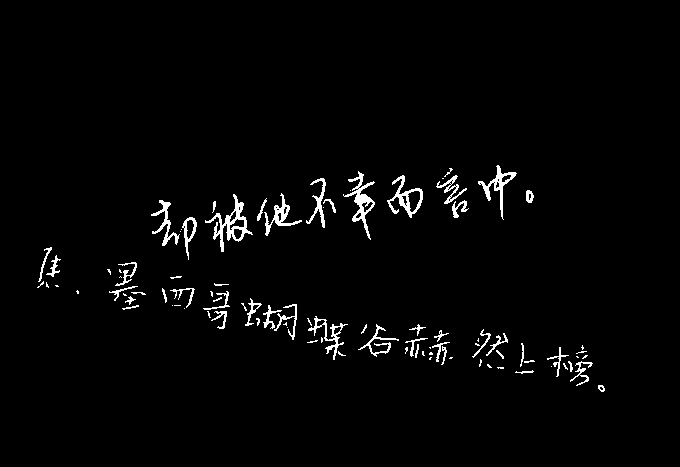 却被他不幸而言中。
焦、墨西哥蝴蝶谷赫然上榜。